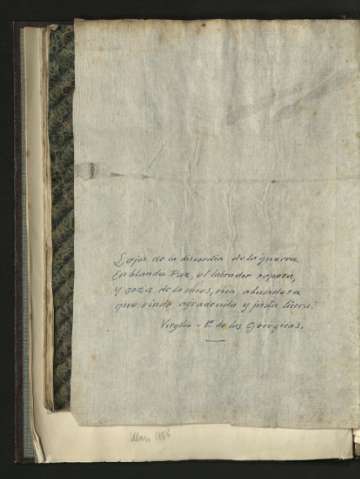 Lejos de la discordia de la guerra
En blanda Paz, el labrador reposa,
y goza de la mies, rica, abundosa
que rinde agradecida y justa tierra.
Virgilio - de las Georgicas.